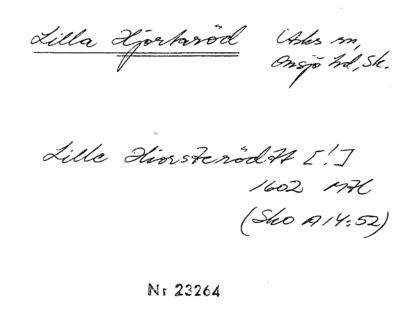 Lilla Hjortaröd Asks sn,
Onsjö hd, Sk.
Lille Hiorsterödtt [!]
1602 MH
(Sko A 14:52)
Nr 23264